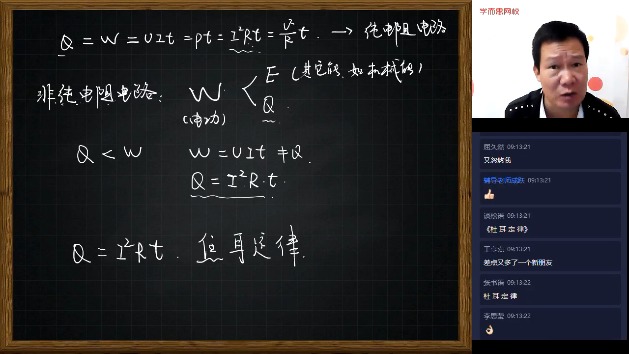 Q = W = UIt = Pt = I²Rt = U²/R t. → 纯电阻电路
非纯电阻电路: W (电功) < E (其它能.如机械能) Q.
Q < W W = UIt ≠ Q.
Q = I²R·t.
Q = I²Rt. 焦耳定律.
学而思网校
09:13:21
又没教我
09:13:21
👍
09:13:21
《杜耳定律》
09:13:21
差点又多了一个新朋友
张书语 09:13:22
杜耳定律
李思莹 09:13:22
👌